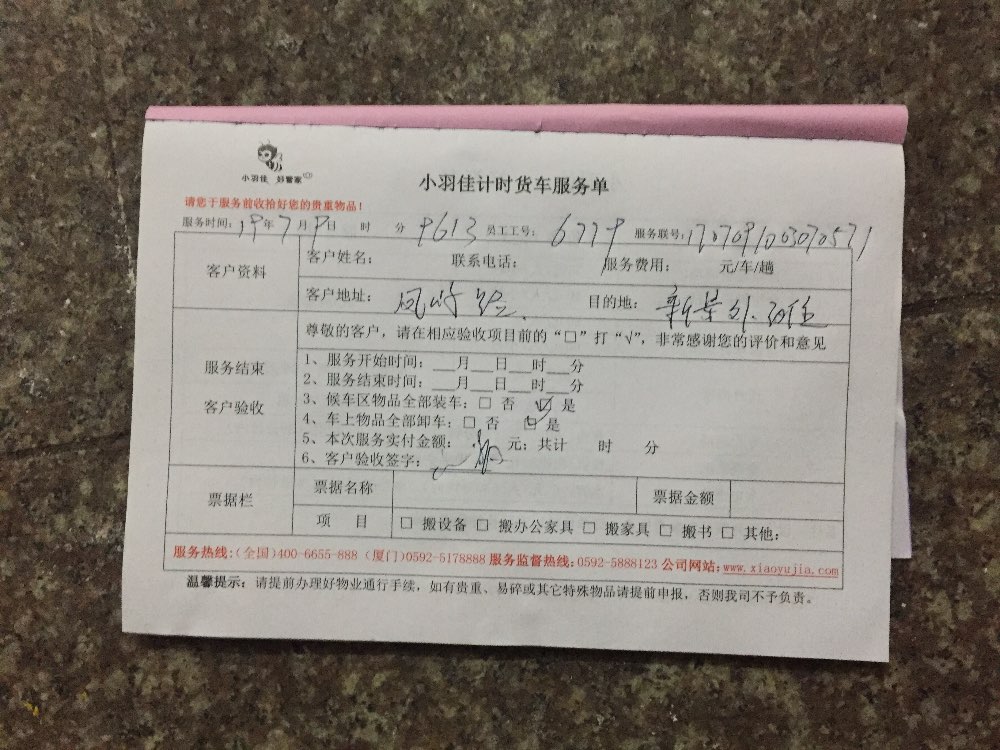 小羽佳 妙管家
小羽佳计时货车服务单
请您于服务前收拾好您的贵重物品!
服务时间: 年7月 日 时 分 9613 员工工号: 6779 服务联号:
客户资料
客户姓名: 联系电话: 服务费用: 元/车/趟
客户地址: 目的地:
服务结束
客户验收
尊敬的客户,请在相应验收项目前的“□”打“√”,非常感谢您的评价和意见
1、服务开始时间:___月___日___时___分
2、服务结束时间:___月___日___时___分
3、候车区物品全部装车:□ 否 ☑ 是
4、车上物品全部卸车:□ 否 ☑ 是
5、本次服务实付金额: 元;共计 时 分
6、客户验收签字:
票据栏
票据名称 票据金额
项 目 □ 搬设备 □ 搬办公家具 □ 搬家具 □ 搬书 □ 其他:
服务热线:(全国)400-6655-888 (厦门)0592-5178888 服务监督热线:0592-5888123 公司网站:www.xiaoyujia.com
温馨提示:请提前办理好物业通行手续,如有贵重、易碎或其它特殊物品请提前申报,否则我司不予负责。